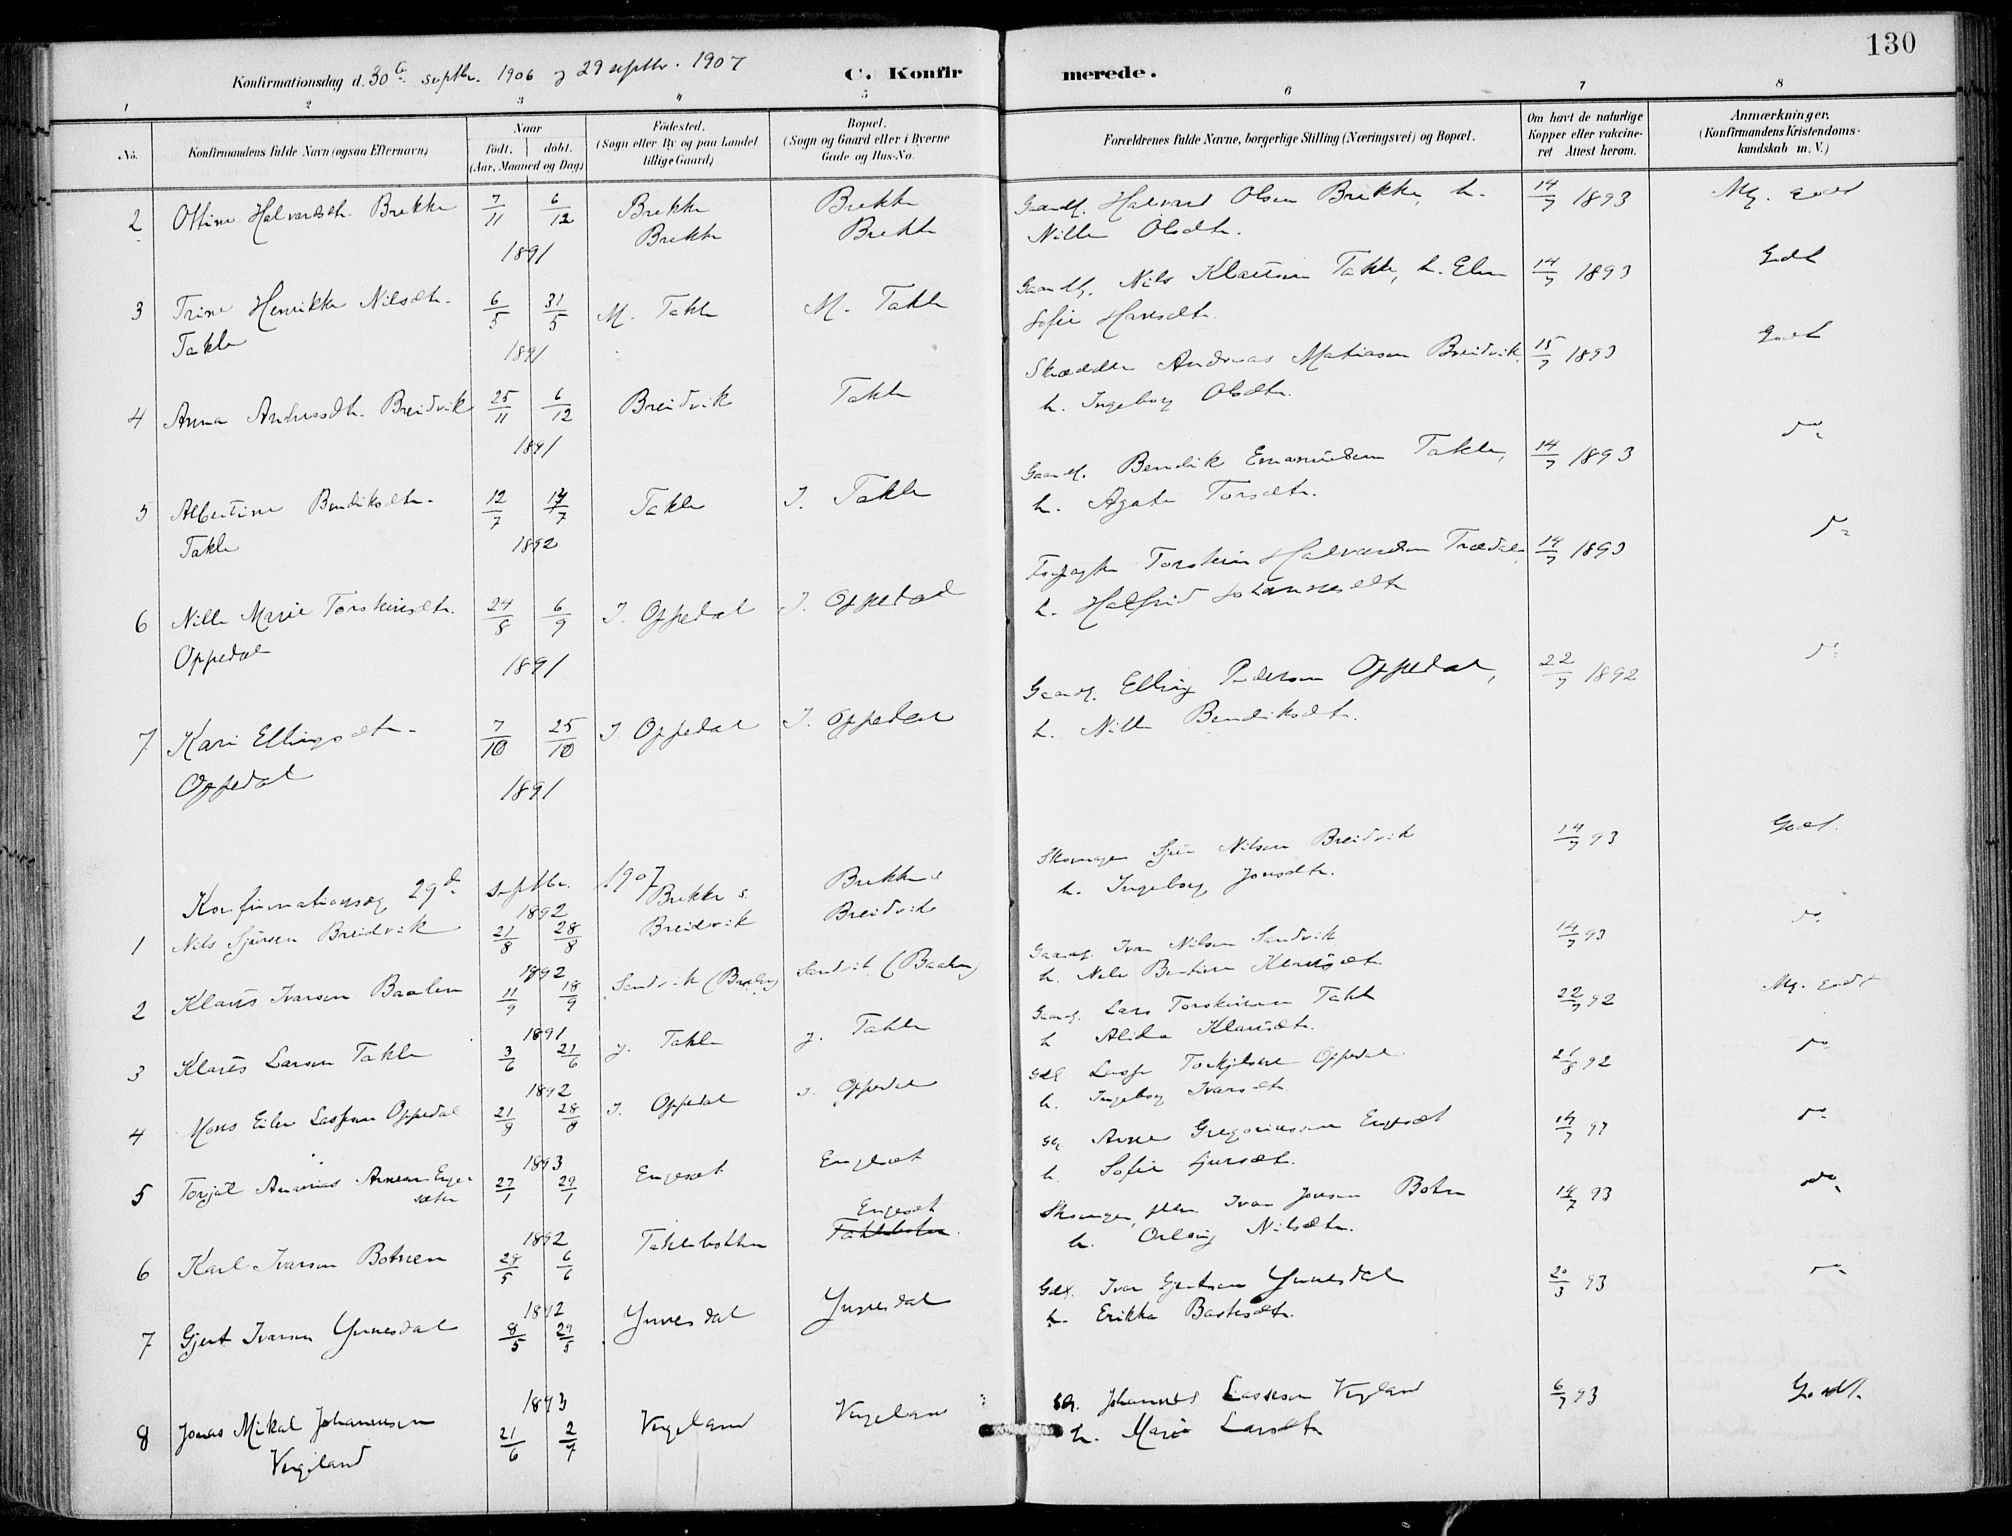 130
Konfirmationsdag d. 30te septbr. 1906 og 29 septbr. 1907
C. Konfirmerede.
1 2 3 4 5 6 7 8
No.
Konfirmandens fulde Navn (ogsaa Efternavn)
Naar
født. døbt.
(Aar, Maaned og Dag)
Fødested.
(Sogn eller By og paa Landet
tillige Gaard)
Bopæl.
(Sogn og Gaard eller i Byerne
Gade og Hus-No.
Forældrenes fulde Navne, borgerlige Stilling (Næringsvei) og Bopæl.
Om havt de naturlige
Kopper eller vakcine-
ret Attest herom.
Anmærkninger.
(Konfirmandens Kristendoms-
kundskab m. V.)
2 Oltine Halvardsdtr. Brekke 7/11 6/12 Brekke Brekke Gaardbr. Halvard Olsen Brekke, h. 14/7 1893 Mg. godt
1891 Brekke Brekke Nille Olsdtr.
3 Trine Henrikke Nilsdtr. 6/5 31/5 M. Takle M. Takle Gaardbr. Nils Klausen Takle, h. Elen 14/7 1893 Godt
Takle 1891 Sofie Hansdtr.
4 Anna Andreasdtr. Breidvik 25/11 6/12 Breidvik Takle Skrædder Andreas Matiasen Breidvik, 15/7 1893 Godt
1891 h. Ingeborg Olsdtr.
5 Albertine Bendiksdtr. 12/7 17/7 Takle I. Takle Gaardbr. Bendik Emanuelsen Takle, 14/7 1893 do
Takle 1892 h. Agate Torsdtr.
6 Nille Marie Torsteinsdtr. 24/8 6/9 I. Oppedal I. Oppedal Torstein Halvardsen Trædal 14/7 1893 do
Oppedal 1891 h. Halfrid Johannesdtr
7 Kari Ellingsdtr. 7/10 25/10 I. Oppedal I. Oppedal Gaardbr. Elling Pedersen Oppedal, 22/7 1892 do
Oppedal 1891 h. Nille Bendiksdtr.
Konfirmationsdag 29de septbr. 1907
1 Nils Sjursen Breidvik 1892 21/8 28/8 Brekke s Breidvik Brekke s Breidvik Skomager Sjur Nilsen Breidvik 14/7 93 Godt.
h. Ingeborg Jonsdtr.
2 Klaus Ivarsen Baalen 1892 11/9 18/9 Sandvik (Baalen) Sandvik (Baalen) Gaardbr. Ivar Nilsen Sandvik 14/7 93 do
h. Nille Bertine Klausdt
3 Klaus Larsen Takle 1891 3/6 21/6 y. Takle y. Takle Gaardbr. Lars Torsteinsen Takle 22/7 92 Mg. godt
h Alida Klausdtr.
4 Mons Eiler Lasssen Oppedal 1892 21/8 28/8 I. Oppedal I. Oppedal Gdbr Lasse Torkjelsen Oppedal 26/8 92 do
h. Ingeborg Ivarsdt
5 Torjal Ananias Arnesen Enge- 1893 27/1 29/1 Engesæt Engesæt Gbr Arne Gregoriussen Engesæt 14/7 93 do
sæter h. Sofie Sjursdt.
6 Karl Ivarsen Botnen 1892 29/5 6/6 Taklebotten Engesæt Taklebotn. Skomager, Ivar Jonsen Botn 14/7 93 do
h. Nilsdtr.
7 Gjert Ivarsen Ynnesdal 1892 8/5 29/5 Ynnesdal Ynnesdal Gdbr. Ivar Gjertsen Ynnesdal 20/3 93 do
h. Erikke Bastesdtr.
8 Jonas Mikal Johannessen 1893 21/6 2/7 Vergeland Vergeland Gbr. Johannes Lassesen Vergeland 6/7 93 Godt.
Vergeland h. Marie Larsdtr